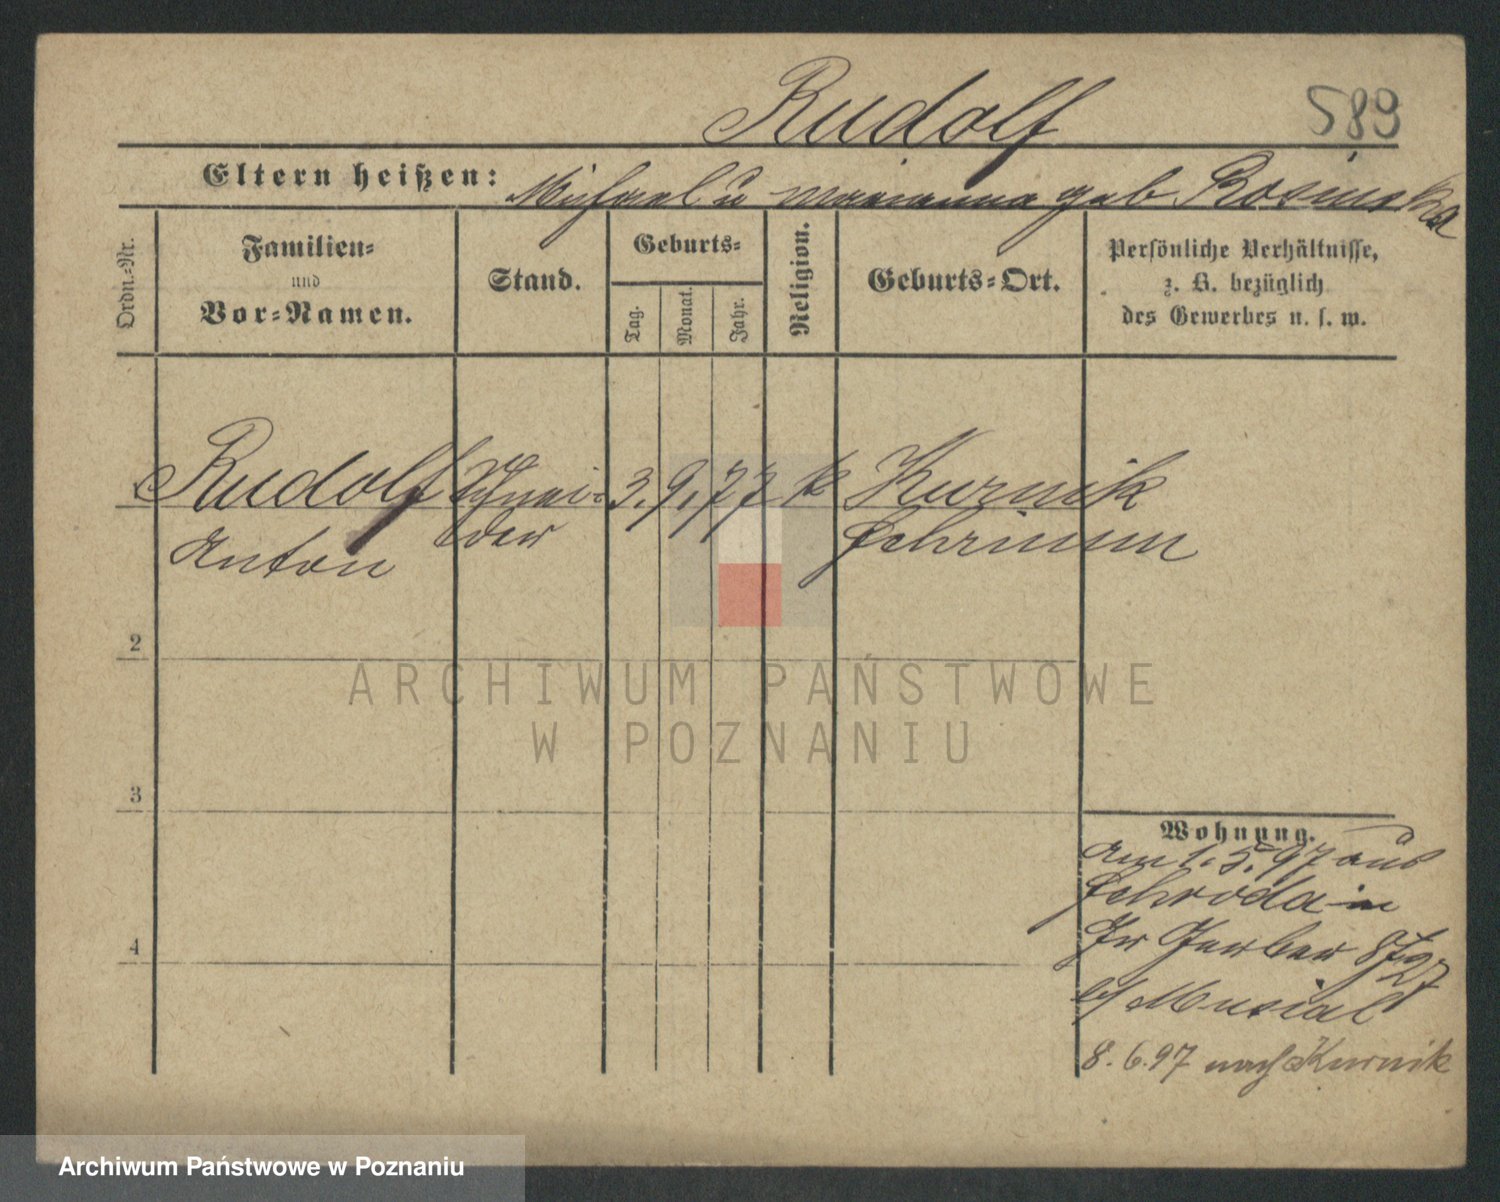 Rudolf
589
Eltern heißen: Michael u Marianna geb Rosinska
Ordn.-Nr.
Familien-
und
Vor-Namen.
Stand.
Geburts-
Tag.
Monat.
Jahr.
Religion.
Geburts-Ort.
Persönliche Verhältnisse,
z. B. bezüglich
des Gewerbes u. s. w.
Rudolf Schnei- 3. 9. 77 k Kurnik
Anton der Schrimm
2
3
4
Wohnung.
am 1. 5. 97 aus
Schroda in
Gr Gerber
b/ Musial
8. 6. 97 nach Kurnik
ARCHIWUM PAŃSTWOWE
W POZNANIU
Archiwum Państwowe w Poznaniu